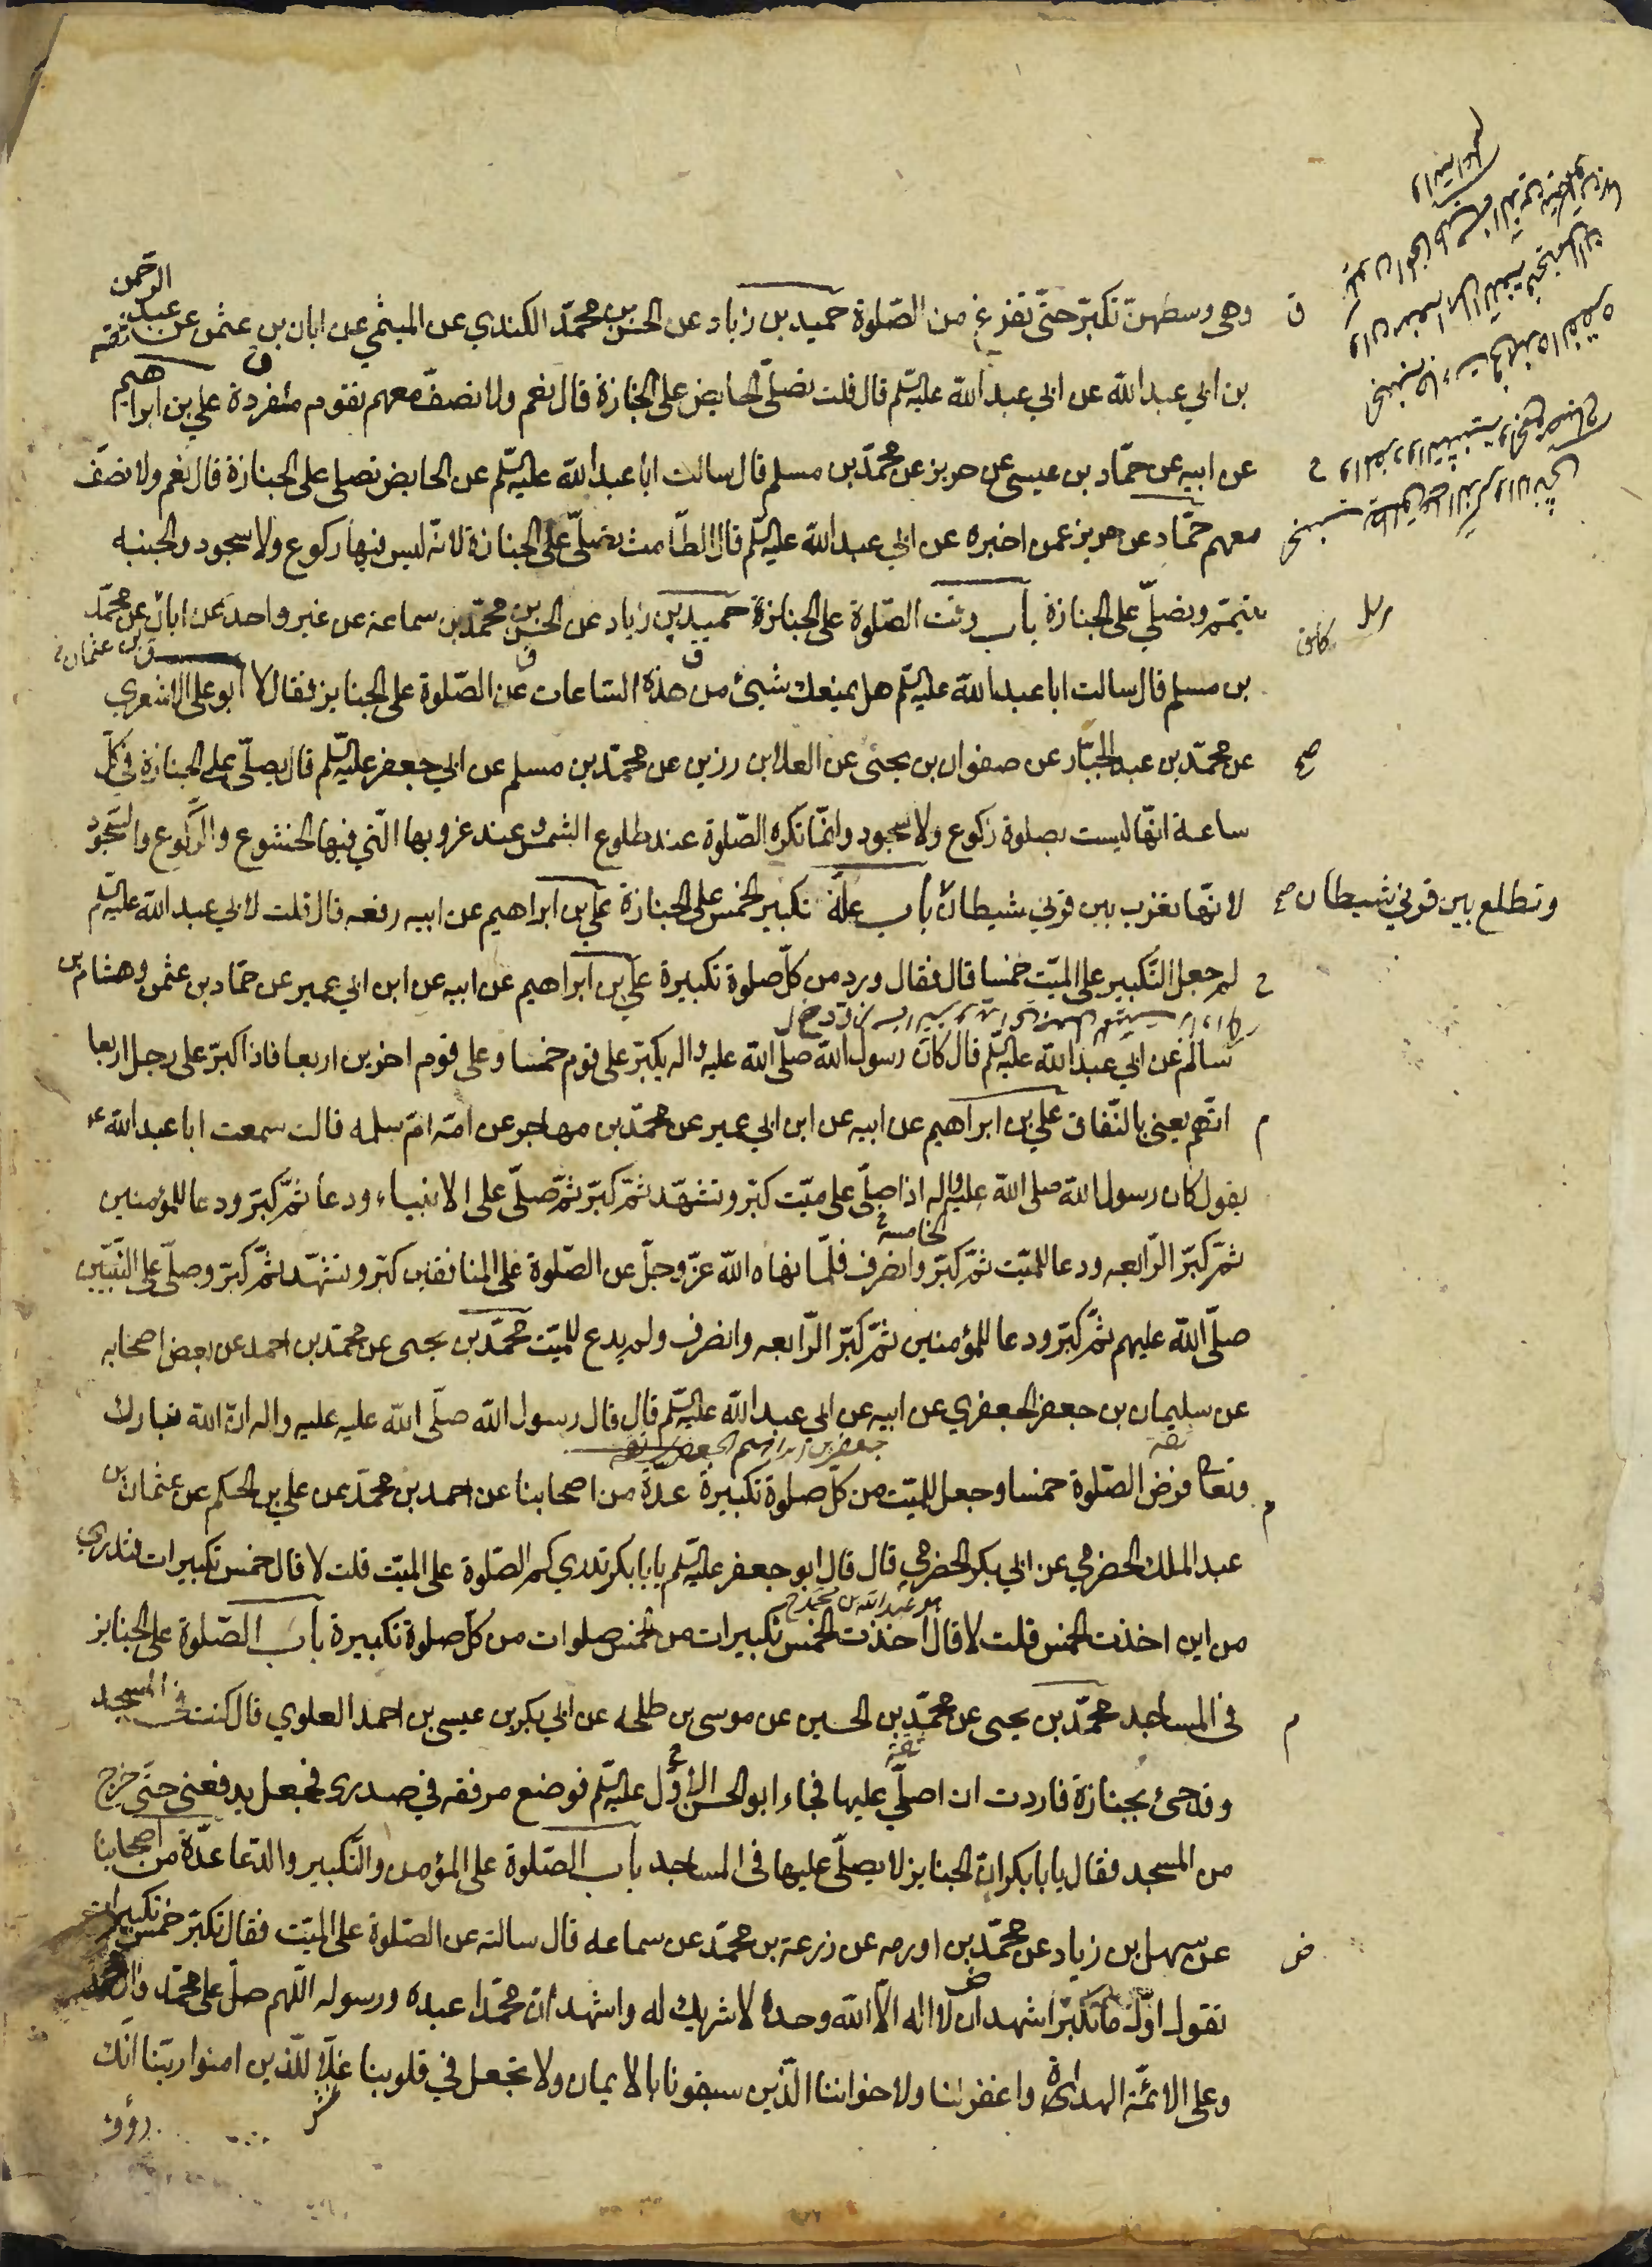 وهى وسطهنّ تكبّر حتّى تفرغ من الصّلوة حميد بن زياد عن الحسن بن محمّد الكندي عن الميثمي عن ابان بن عثمن عن عبد الرحمن
بن ابي عبد الله عن ابي عبد الله عليه السّلم قال قلت تصلّي الحايض على الجنازة قال نعم ولا تصفّ معهم تقوم منفردة علي بن ابراهيم
عن ابيه عن حمّاد بن عيسى عن حريز عن محمّد بن مسلم قال سالت ابا عبد الله عليه السّلم عن الحايض تصلي على الجنازة قال نعم ولا تصفّ
معهم حمّاد عن حريز عمن اخبره عن ابي عبد الله عليه السّلم قال الطّامث تصلّي على الجنازة لانّه ليس فيها ركوع ولا سجود والجنبه
تتيمّم وتصلّي على الجنازة باب وقت الصّلوة على الجنازة حميد بن زياد عن الحسن بن محمّد بن سماعة عن غير واحد عن ابان عن محمّد
بن مسلم قال سالت ابا عبد الله عليه السّلم هل يمنعك شيئ من هذه السّاعات عن الصّلوة على الجنايز فقال لا ابو علي الاشعري
عن محمّد بن عبد الجبّار عن صفوان بن يحيى عن العلا بن رزين عن محمّد بن مسلم عن ابي جعفر عليه السّلم قال يصلّي على الجنازة في كلّ
ساعة انّها ليست بصلوة ركوع ولا سجود وانّما تكره الصّلوة عند طلوع الشمس وعند غروبها الّتي فيها الخشوع والرّكوع والسّجود
لانّها تغرب بين قرني شيطان باب علّة تكبير الخمس على الجنازة علي بن ابراهيم عن ابيه رفعه قال قلت لابي عبد الله عليه السّلم
وتطلع بين قرني شيطان صح
لم جعل التّكبير على الميّت خمسا قال فقال ورد من كلّ صلوة تكبيرة علي بن ابراهيم عن ابيه عن ابن ابي عمير عن حمّاد بن عثمن وهشام بن
سالم عن ابي عبد الله عليه السّلم قال كان رسول الله صلى الله عليه واله يكبّر على قوم خمسا وعلى قوم اخرين اربعا فاذا كبّر على رجل اربعا
اتّهم يعني بالنّفاق علي بن ابراهيم عن ابيه عن ابن ابي عمير عن محمّد بن مهاجر عن امّه امّ سلمه قالت سمعت ابا عبد الله ع
يقول كان رسول الله صلى الله عليه واله اذا صلّى على ميّت كبّر وتشهّد ثمّ كبّر ثمّ صلّى على الانبياء ودعا ثمّ كبّر ودعا للمؤمنين
ثمّ كبّر الرّابعه ودعا للميّت ثمّ كبّر الخامسة وانصرف فلمّا نهاه الله عزّ وجلّ عن الصّلوة على المنافقين كبّر وتشهّد ثمّ كبّر وصلّى على النّبيّين
صلّى الله عليهم ثمّ كبّر ودعا للمؤمنين ثمّ كبّر الرّابعه وانصرف ولم يدع للميّت محمّد بن يحيى عن محمّد بن احمد عن بعض اصحابه
عن سليمان بن جعفر الجعفري عن ابيه عن ابي عبد الله عليه السّلم قال قال رسول الله صلّى الله عليه عليه واله انّ الله تبارك
وتعا فرض الصّلوة خمسا وجعل للميّت من كلّ صلوة تكبيرة عدّة من اصحابنا عن احمد بن محمّد عن علي بن الحكم عن عثمان بن
عبد الملك الحضرمي عن ابي بكر الحضرمي قال قال ابو جعفر عليه السّلم يابا بكر تدري كم الصّلوة على الميّت قلت لا قال خمس تكبيرات فتدري
من اين اخذت الخمس قلت لا قال اخذت الخمس تكبيرات من الخمس صلوات من كلّ صلوة تكبيرة باب الصّلوة على الجنايز
في المساجد محمّد بن يحيى عن محمّد بن الحسين عن موسى بن طلحه عن ابي بكر بن عيسى بن احمد العلوي قال كنت في المسجد
وقد جئ بجنازة فاردت ان اصلّي عليها فجاء ابو الحسن الاوّل عليه السّلم فوضع مرفقه في صدري فجعل يدفعني حتّى خرج
من المسجد فقال يابا بكر انّ الجنايز لا يصلّى عليها في المساجد باب الصّلوة على المؤمن والتّكبير والدّعا عدّة من اصحابنا
عن سهل بن زياد عن محمّد بن اورمه عن زرعة بن محمّد عن سماعه قال سالته عن الصّلوة على الميّت فقال تكبّر خمس تكبيرات
تقول اوّل ما تكبّر اشهد ان لا اله الّا الله وحده لا شريك له واشهد انّ محمّدا عبده ورسوله اللّهم صلّ على محمّد وال محمد
وعلى الائمّة الهداة واغفر لنا ولاخواننا الّذين سبقونا بالايمان ولا تجعل في قلوبنا غلّا للّذين امنوا ربّنا انّك
رؤوف